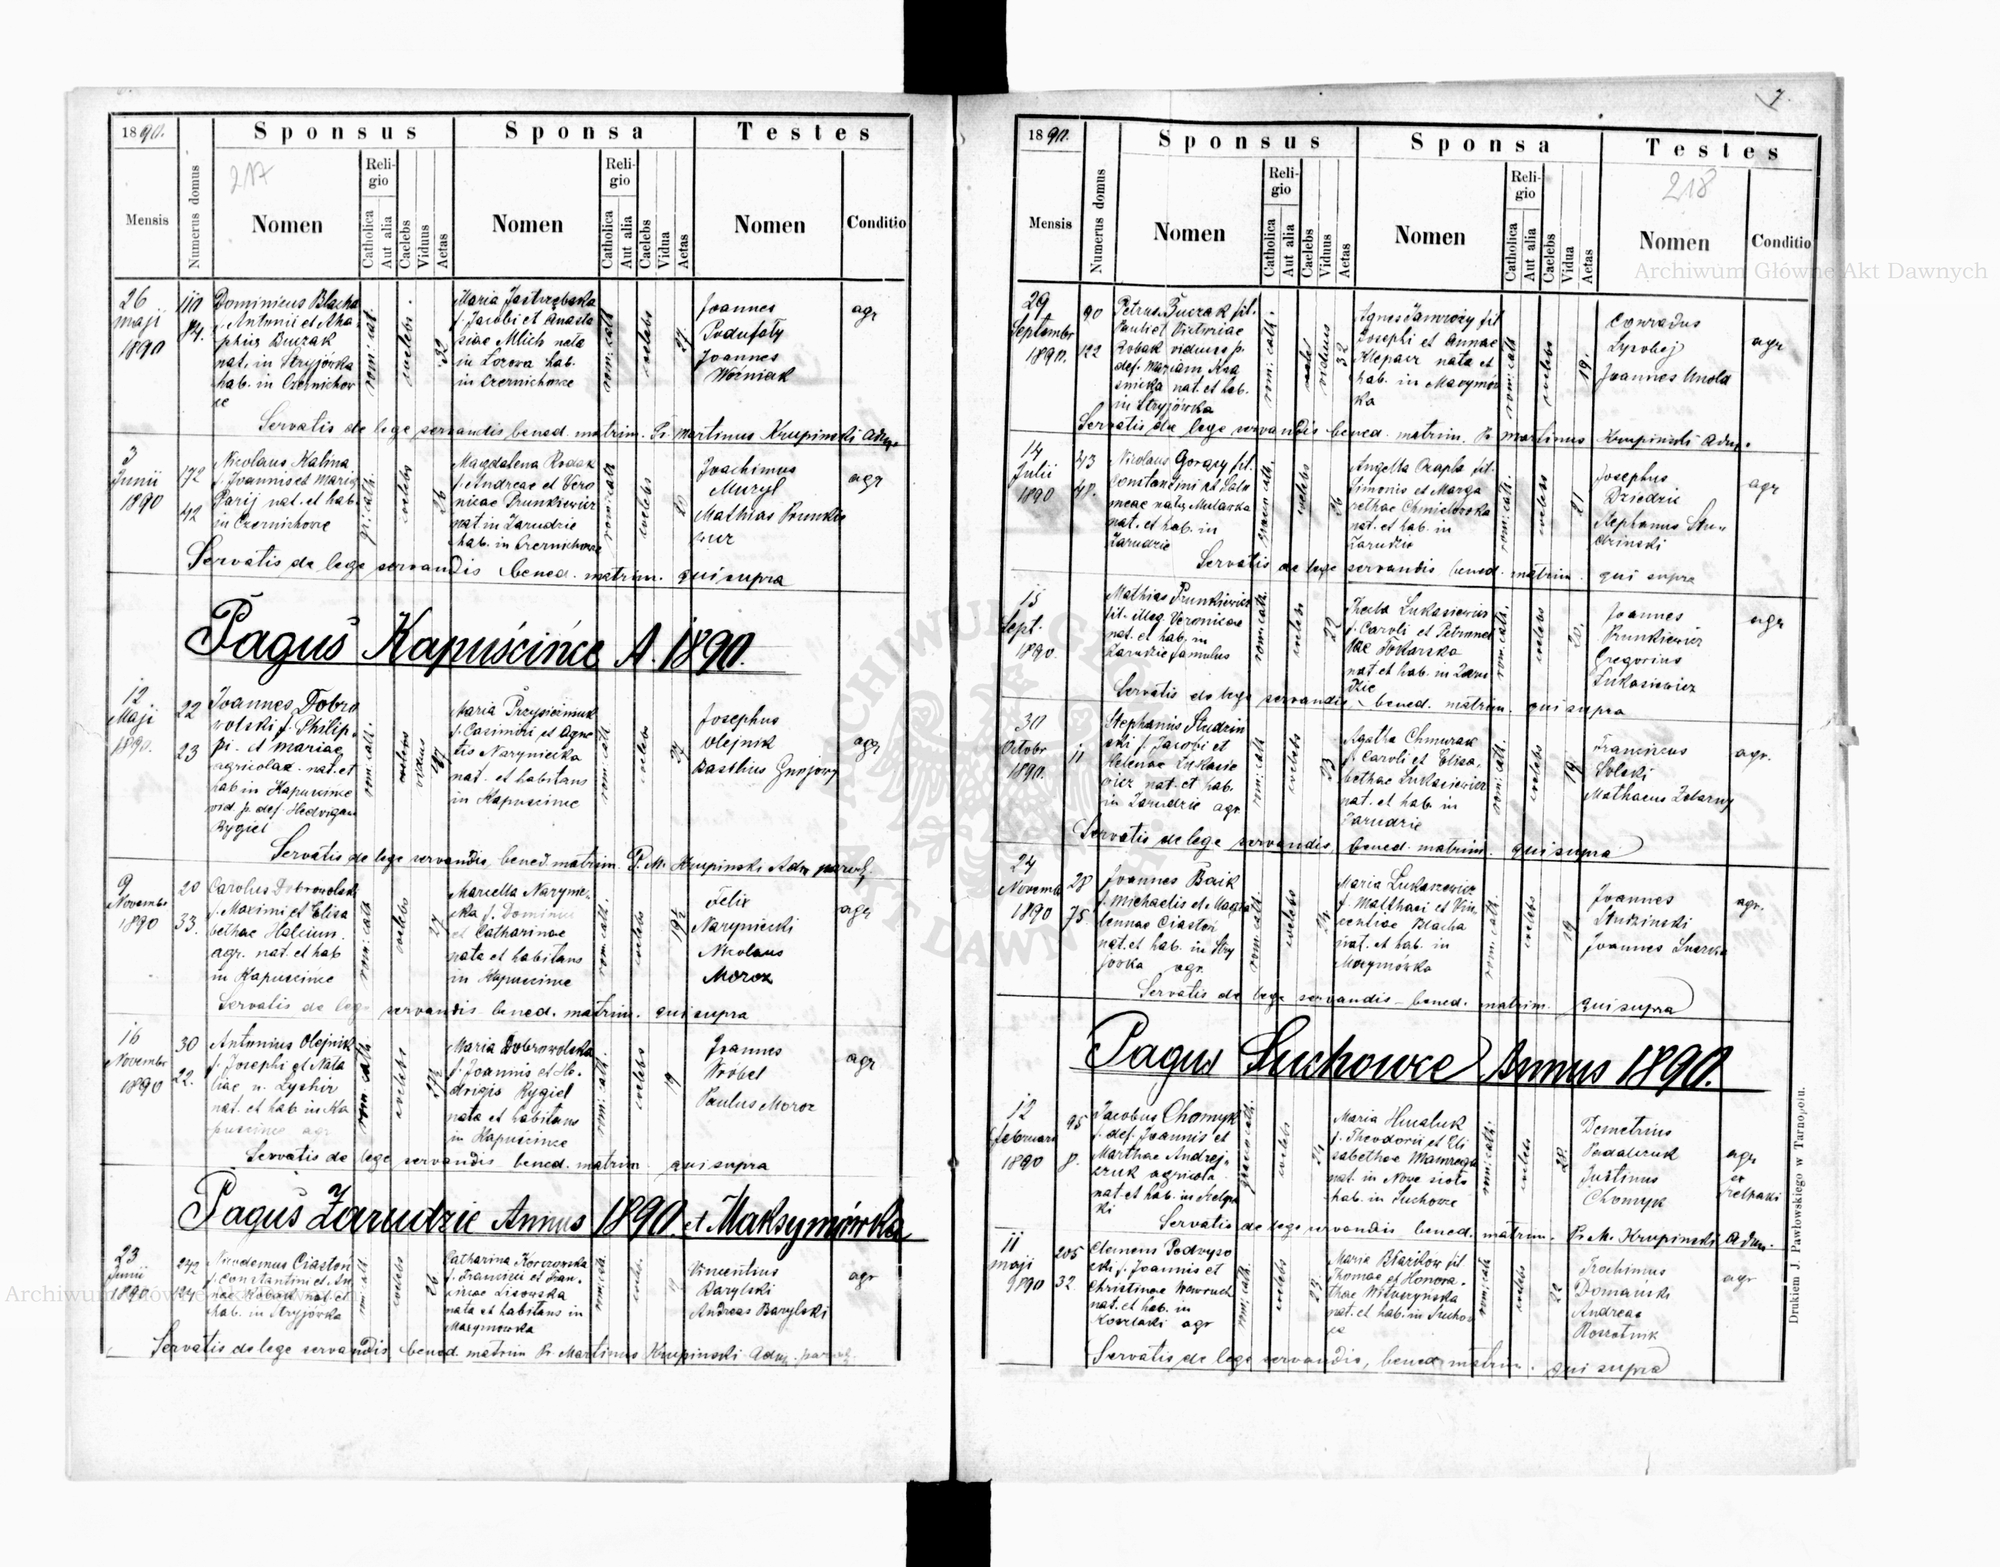 1890.
Sponsus
Sponsa
Testes
217
Mensis
Numerus domus
Nomen
Religio
Catholica
Aut alia
Caelebs
Viduus
Aetas
Nomen
Religio
Catholica
Aut alia
Caelebs
Vidua
Aetas
Nomen
Conditio
26
maji
1890
110
84.
Dominicus Blacha
f. Antonii et Aga
phiae Buczak
nat. in Stryjówka
hab. in Czernichow
ce
rom: cat.
caelebs
32
Maria Jastrzębska
f. Jacobi et Anasta
siae Mlich nata
in Lozova hab.
in Czernichowce
rom: cath
caelebs
27
Joannes
Podufały
Joannes
Woźniak
agr
Servatis de lege servandis bened. matrim. Pr. Martinus Krupinski Adm.
3
Junii
1890
172
42
Nicolaus Kalina
f. Joannis et Maria
Parij nat. et hab.
in Czernichowce
gr: cath.
caelebs
26
Magdalena Rodak
f. Andreae et Vero
nicae Prunkiewicz
nat in Zarudzie
hab. in Czernichowce
rom: cath
caelebs
20
Joachimus
Muryl
Mathias Prunkie
wicz
agr
Servatis de lege servandis bened. matrim. qui supra
Pagus Kapuścińce A. 1890.
12
Maji
1890.
22
23
Joannes Dobro
wolski f. Philip
pi et Mariae
agricolae nat. et
hab in Kapuscince
vid. p. def. Hedvigam
Rygiel
rom: cath.
viduus
47
Maria Przysiężniuk
f. Casimiri et Agne
tis Naryniecka
nat. et habitans
in Kapuscince
rom: cath.
caelebs
27
Josephus
Olejnik
Basilius Gnojowy
agr
Servatis de lege servandis bened. matrim. P. M. Krupinski Adm. paroch.
9
Novembr
1890
20
33.
Carolus Dobrowolski
f. Maximi et Elisa
bethae Halciun
agr. nat. et hab
in Kapuscince
rom: cath
caelebs
27
Marcella Naryniec
cka f. Dominici
et Catharinae
nata et habitans
in Kapuscince
rom: cath.
caelebs
19½
Felix
Naryniecki
Nicolaus
Moroz
agr
Servatis de lege servandis bened. matrim. qui supra
16
Novembr
1890
30
22.
Antonius Olejnik
f. Josephi et Nata
liae n. Lyshir
nat. et hab in Ka
puscince agr.
rom: cath
caelebs
27½
Maria Dobrowolska
f. Joannis et He
drigis Rygiel
nata et habitans
in Kapuścince
rom: cath.
caelebs
19
Joannes
Wróbel
Paulus Moroz
agr
Servatis de lege servandis bened. matrim. qui supra
Pagus Zarudzie Annus 1890. et Maksymówka
23
Junii
1890
242
Nicodemus Ciastoń
f. Constantini et An
nae Robak nat. et
hab. in Stryjówka
caelebs
26
Catharina Korczowska
f. Francisci et Fran
ciscae Lisowska
nata et habitans in
Maxymowka
rom: cath.
Vincentius
Barylski
Andreas Barylski
agr
Servatis de lege servandis bened matrim Pr. Martinus Krupinski Adm. paroch.
7.
1890.
Sponsus
Sponsa
Testes
218
Mensis
Numerus domus
Nomen
Religio
Catholica
Aut alia
Caelebs
Viduus
Aetas
Nomen
Religio
Catholica
Aut alia
Caelebs
Vidua
Aetas
Nomen
Conditio
29
Septembr
1890.
90
122
Petrus Buczak fil.
Pauli et Victoriae
Robak viduus p.
def. Mariam Kra
snicka nat. et hab.
in Stryjówka
rom: cath.
viduus
32
Agnes Jamroży fil
Josephi et Annae
Klepacz nata et
hab. in Maxymów
ka
rom: cath
caelebs
19.
Conradus
Joannes Unold
agr
Servatis de lege servandis bened. matrim. Pr. Martinus Krupinski Adm.
14
Julii
1890
43
48.
Nicolaus Gorący fil.
Constantini et Salo
meae natae Mularka
nat. et hab. in
Zarudzie
graeco cath.
caelebs
26
Angella Czapla fil.
Simonis et Marga
rethae Chmielowska
nat. et hab. in
Zarudzie
rom: cath.
caelebs
21
Josephus
Dziedzic
Stephanus Stu
dzinski
agr
Servatis de lege servandis bened. matrim. qui supra
15
Sept.
1890.
Mathias Prunkiewicz
fil. illeg. Veronicae
nat. et hab. in
Zarudzie famulus
rom: cath.
caelebs
22
Thecla Lukasiewicz
f. Caroli et Petronel
lae Tokarska
nat et hab. in Zaru
dzie
rom: cath.
caelebs
20.
Joannes
Prunkiewicz
Gregorius
Łukasiewicz
agr
Servatis de lege servandis bened. matrim. qui supra
30
Octobr
1890.
11
Stephanus Studzin
ski f. Jacobi et
Helenae Lukasie
wicz nat. et hab.
in Zarudzie agr.
rom: cath
caelebs
23
Agatha Chmurak
f. Caroli et Elisa
bethae Lukasiewicz
nat. et hab. in
Zarudzie
rom: cath.
caelebs
19
Franciscus
Solski
Mathaeus Zelazny
agr.
Servatis de lege servandis, bened. matrim. qui supra
24
Novembr
1890
28
75.
Joannes Baik
f. Michaelis et Magda
lennae Ciastoń
nat. et hab. in Stry
jowka agr.
rom: cath.
caelebs
24.
Maria Lukaszewicz
f. Matthaei et Vin
centiae Blacha
nat. et hab. in
Maxymówka
rom: cath.
caelebs
19
Joannes
Studzinski
Joannes
agr.
Servatis de lege servandis bened. matrim. qui supra
Pagus Suchowce Annus 1890.
12
Februarii
1890
95
8.
Jacobus Chomyk
f. def. Joannis et
Marthae Andrej
czuk agricola
nat. et hab. in Szelpa
ki
graeco cath.
caelebs
24
Maria Hnatiuk
f. Theodorii et Eli
sabethae
nat. in Nove sioło
hab. in Suchowce
rom: cath.
caelebs
28.
Demetrius
Justinus
Chomyk
agr
ex
Szelpaki
Servatis de lege servandis bened. matrim. Pr. M. Krupinski Adm.
11
maji
1890
205
32.
Clemens Podwyso
cki f. Joannis et
Christinae Woroch
nat. et hab. in
Koszlaki agr
rom: cath.
caelebs
23.
Maria fil.
Thomae et Honora
thae Wilczyńska
nat. et hab. in Suchow
ce
rom: cath
caelebs
22
Joachimus
Domański
Andreas
agr
Servatis de lege servandis, bened. matrim. qui supra
Drukiem J. Pawłowskiego w Tarnopolu.
Archiwum Główne Akt Dawnych
Archiwum Główne Akt Dawnych